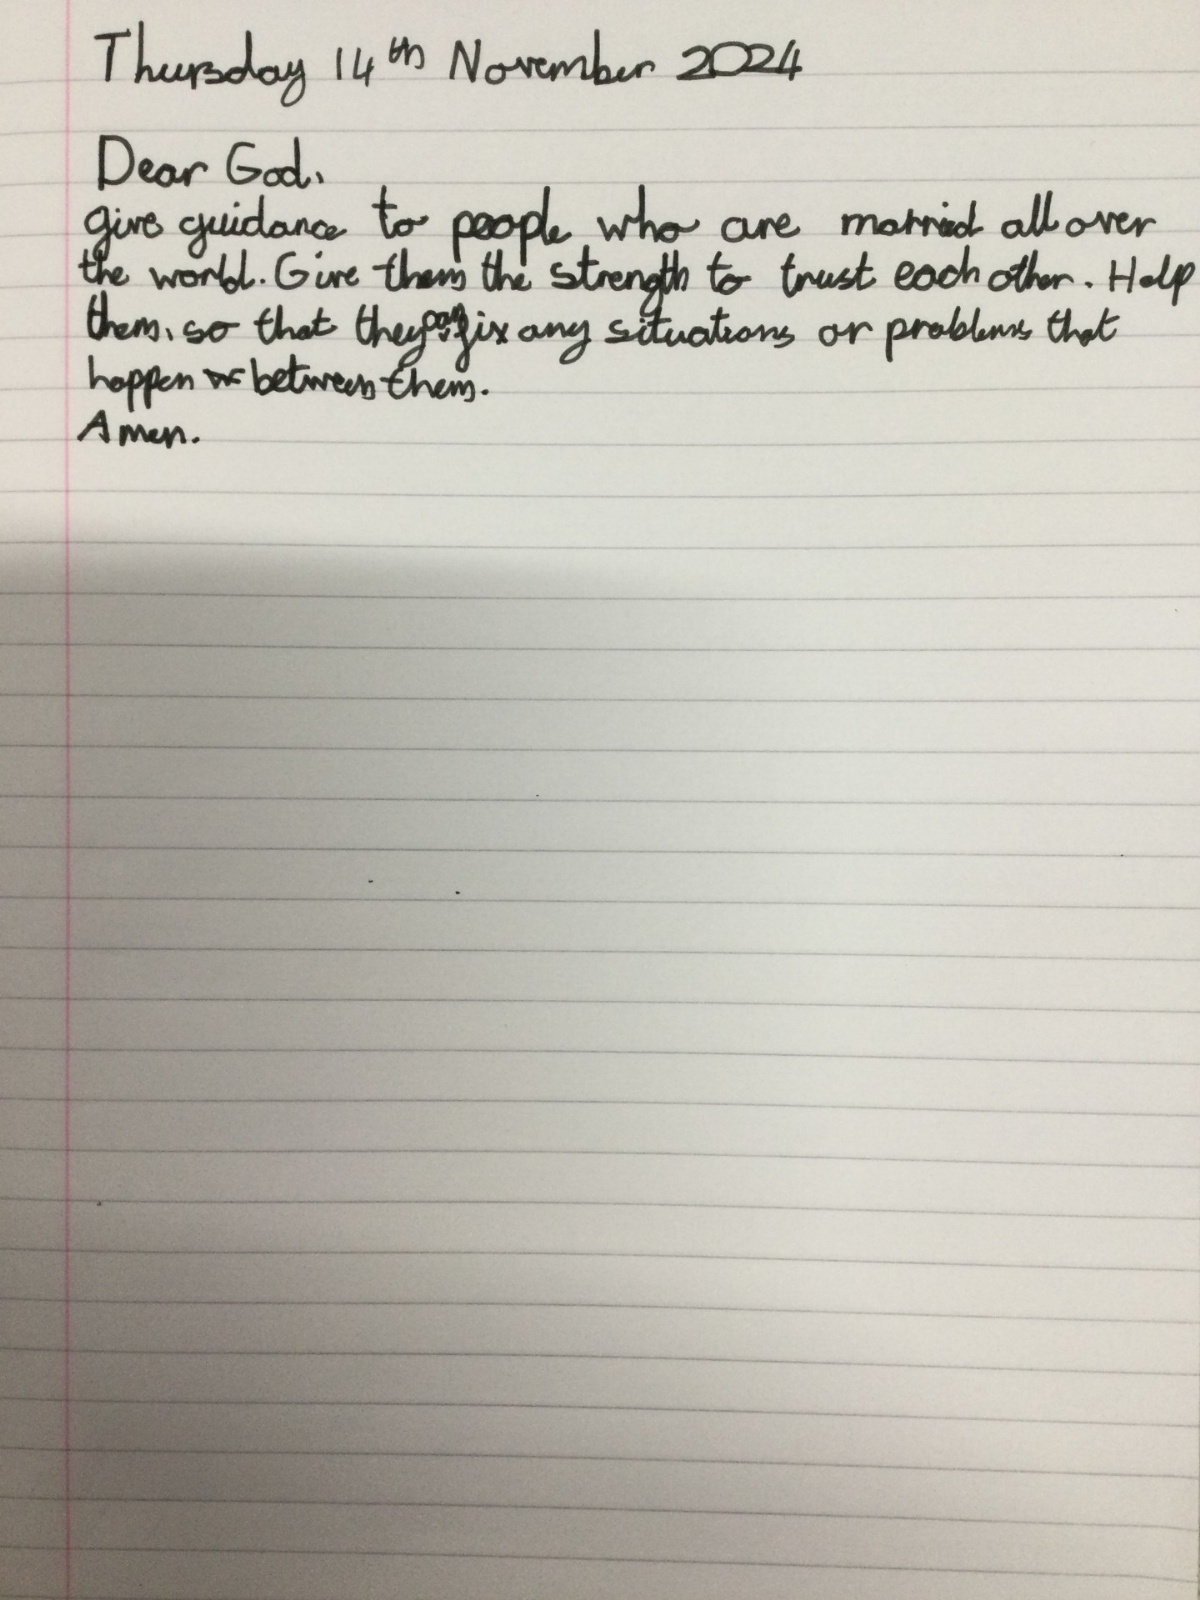 Thursday 14th November 2024
Dear God,
give guidance to people who are married all over
the world. Give them the strength to trust each other. Help
them, so that they can fix any situations or problems that
happen between them.
Amen.